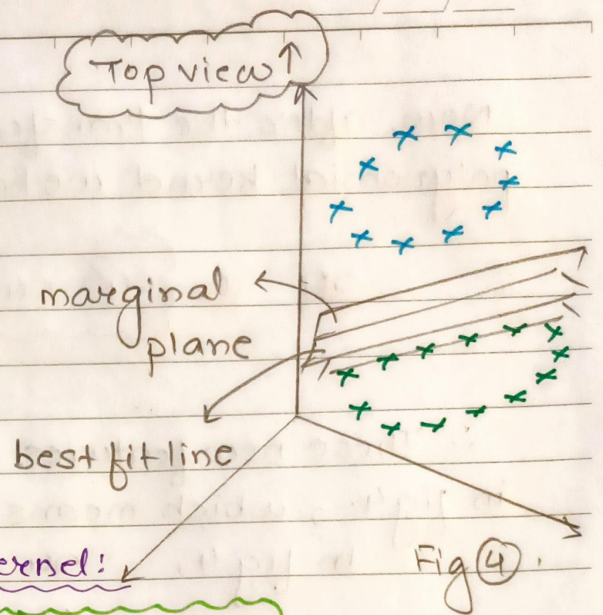 Top view ↑
marginal
plane
best fit line
ernel:
Fig 4.